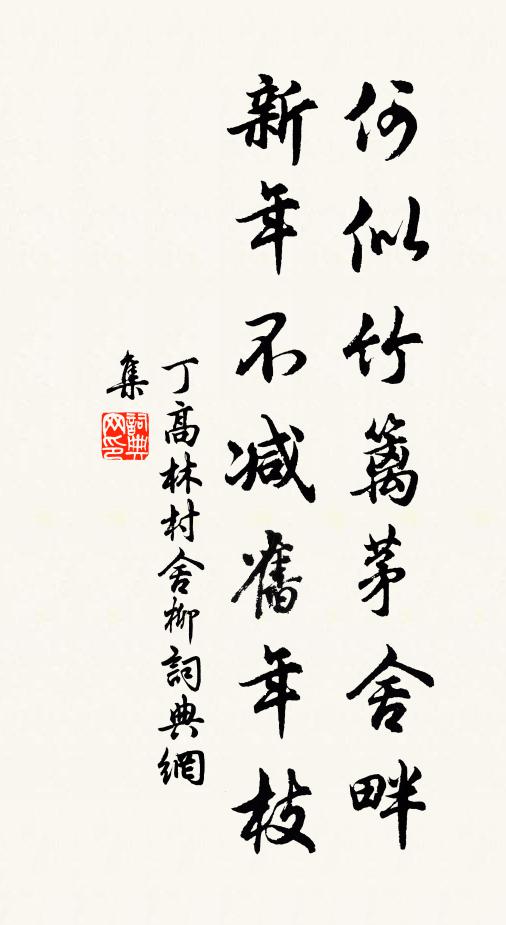 何似竹篱茅舍畔
新年不减舊年枝
丁高林村舍柳詞典網
集
詞典
网印